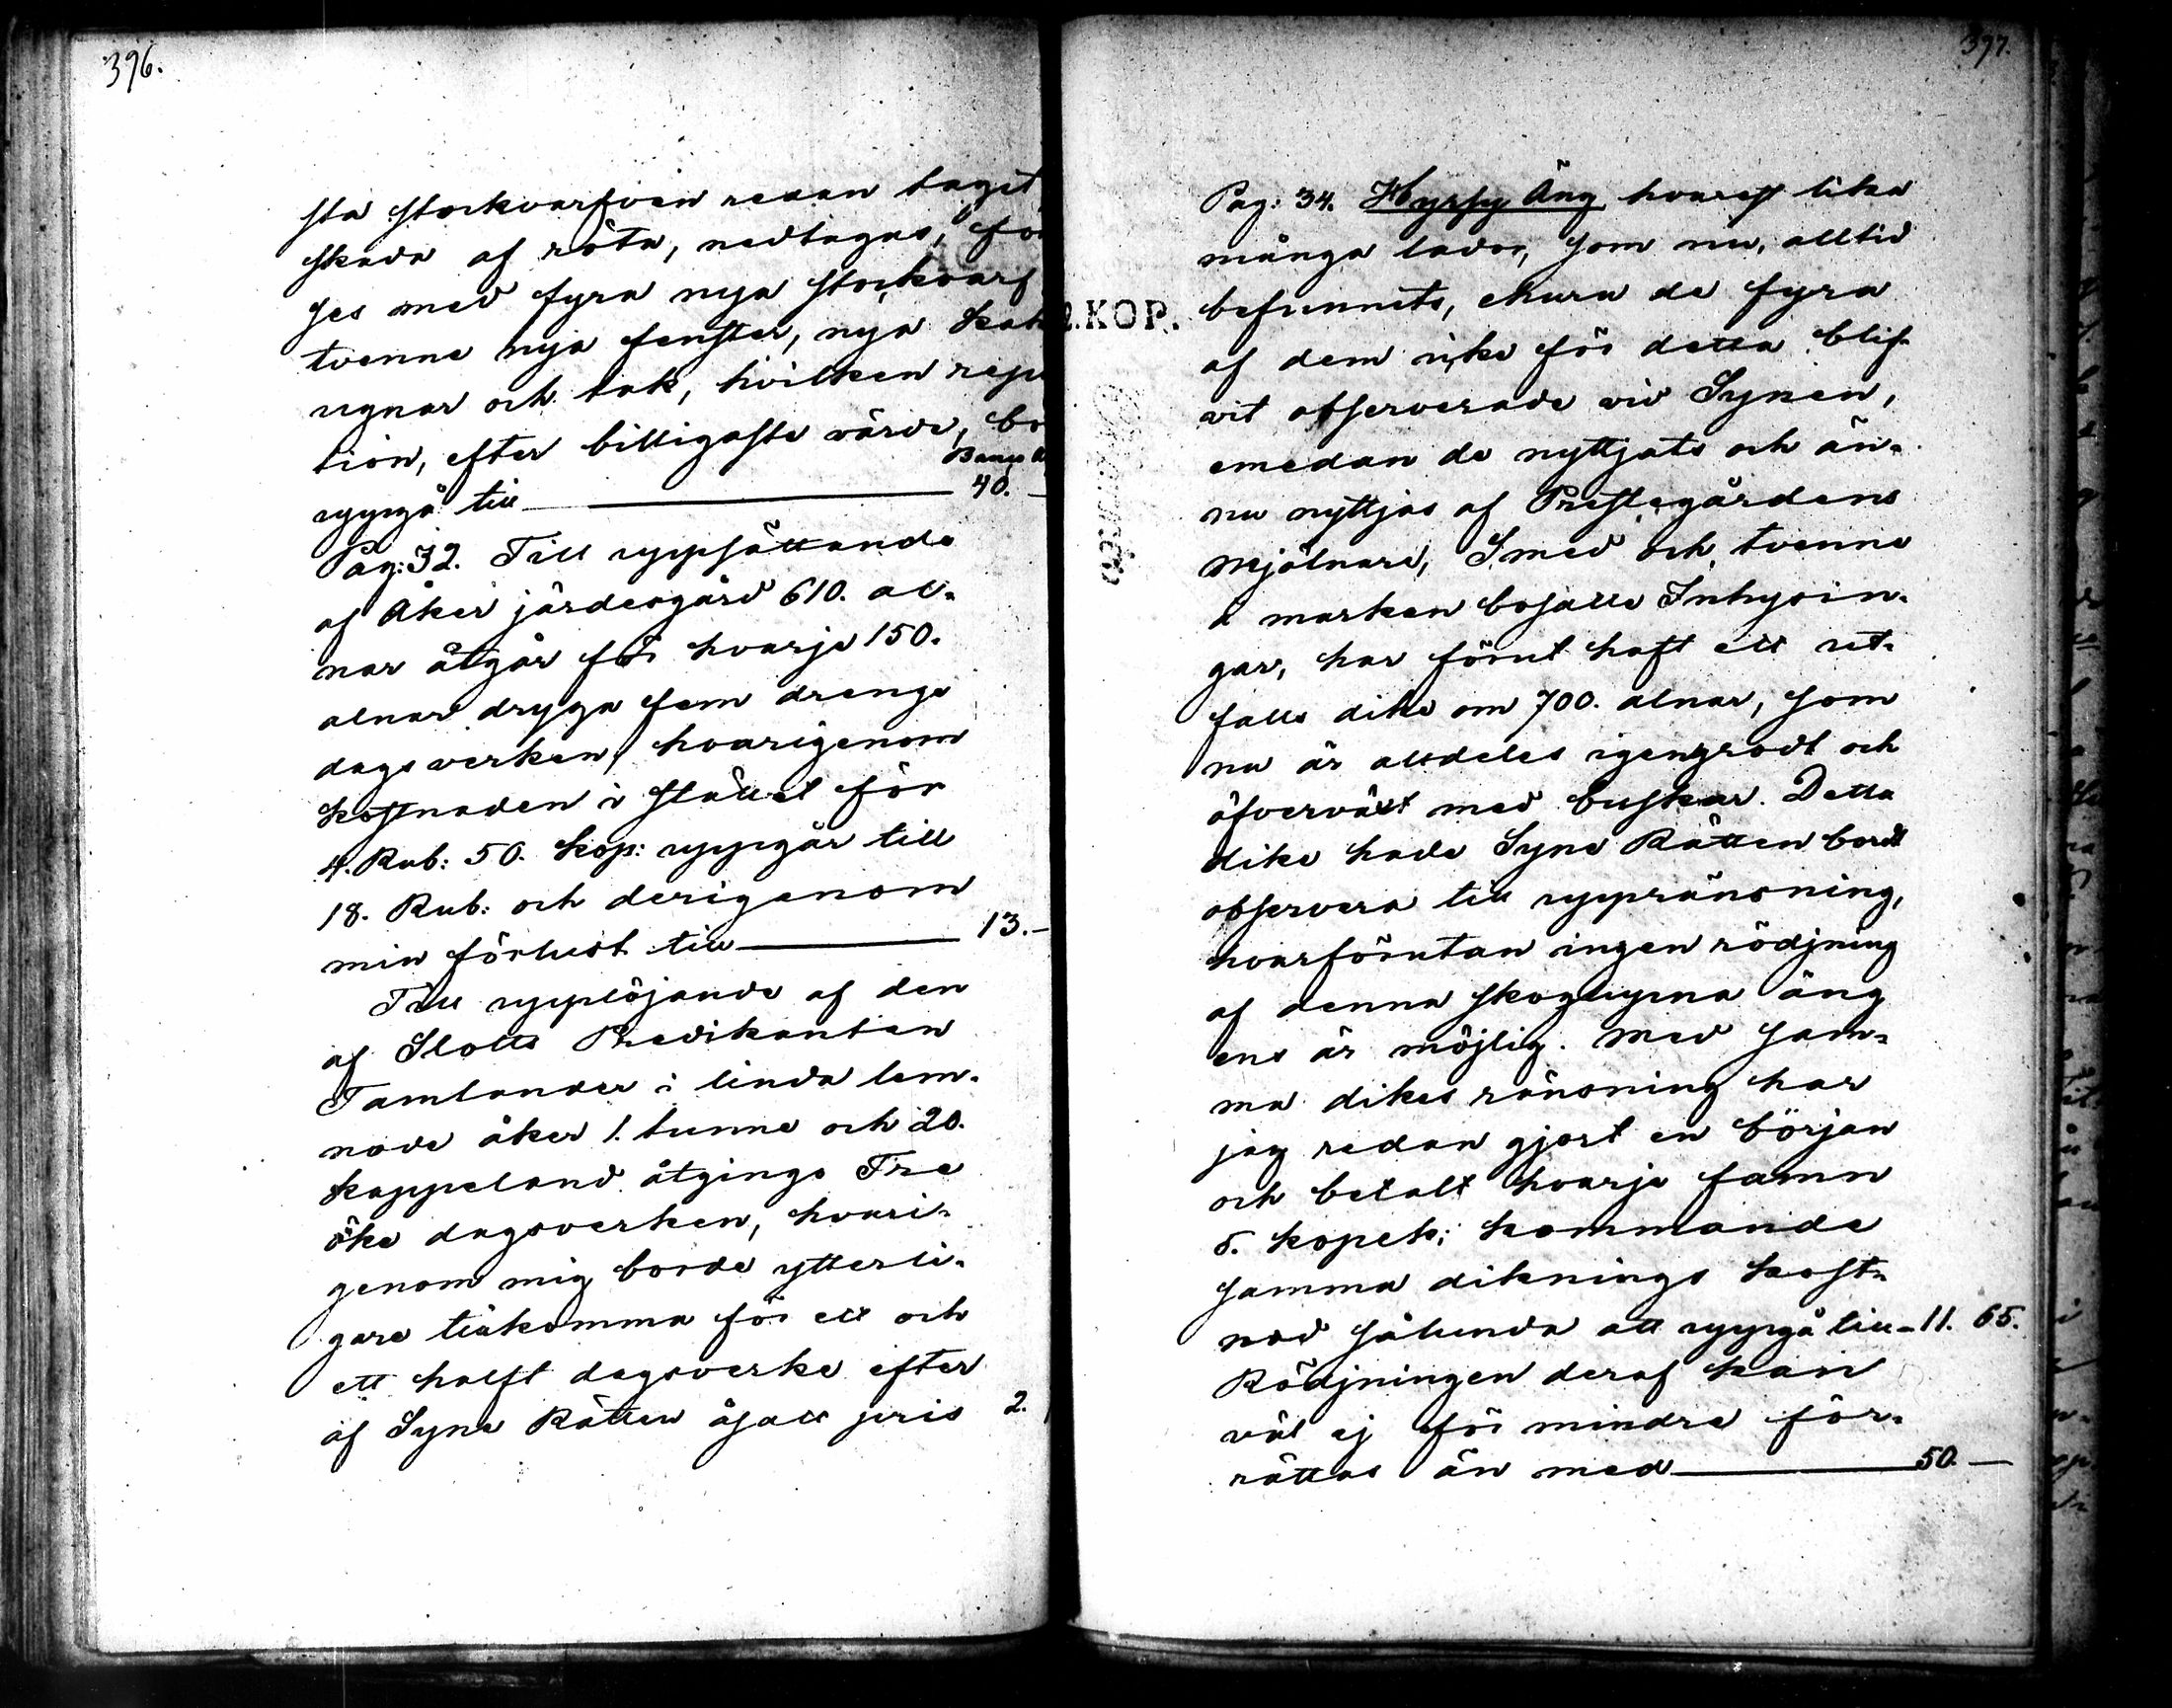 396.
sta stockvarfven redan tagit
skada af röta, nedtagas, för
ses med fyra nya stockvarf
tvenne nya fenster, nya kak
ugnar och tak, hvilken repa
tion, efter billigaste värde, bo
uppgå till 40. –
Pag: 32. Till uppsättande
af Åker järdesgård 610. al-
nar åtgår för hvarje 150.
alnar dryga fem drengs
dagsverken, hvarigenom
kostnaden i stället för
4. Rub: 50. kop: uppgår till
18. Rub: och derigenom
min förlust till 13. –
Till upplöjande af den
af Slotts Predikanten
Tamlander i linda lem-
nade åker 1. tunne och 20.
kappeland åtgingo Tre
öke dagsverken, hvari-
genom mig borde ytterli-
gare tillkomma för ett och
ett halft dagsverke efter
af Syne Rätten åsatt pris 2.
397.
Pag: 34. Hyrsy Äng hvarest lika
många lador, som nu, alltid
2.KOP.
befunnits, ehuru de fyra
af dem icke för detta blif-
vit observerade vid Synen,
emedan de nyttjats och än-
nu nyttjas af Prestegårdens
Mjölnare, Smed och tvenne
å marken bosatte Inhysin-
gar, har förut haft ett ut-
falls dike om 700. alnar, som
nu är alldeles igengrodt och
öfverväxt med buskar. Detta
dike hade Syne Rätten bordt
observera till uppränsning,
hvarförutan ingen rödjning
af denna skoglupna äng
ens är möjlig. Med sam-
ma dikes ränsning har
jag redan gjort en början
och betalt hvarje famn
5. kopek; kommande
samma diknings kost-
nad sålunda att uppgå till – 11. 65.
Rödjningen deraf kan
väl ej för mindre för-
rättas än med 50. –